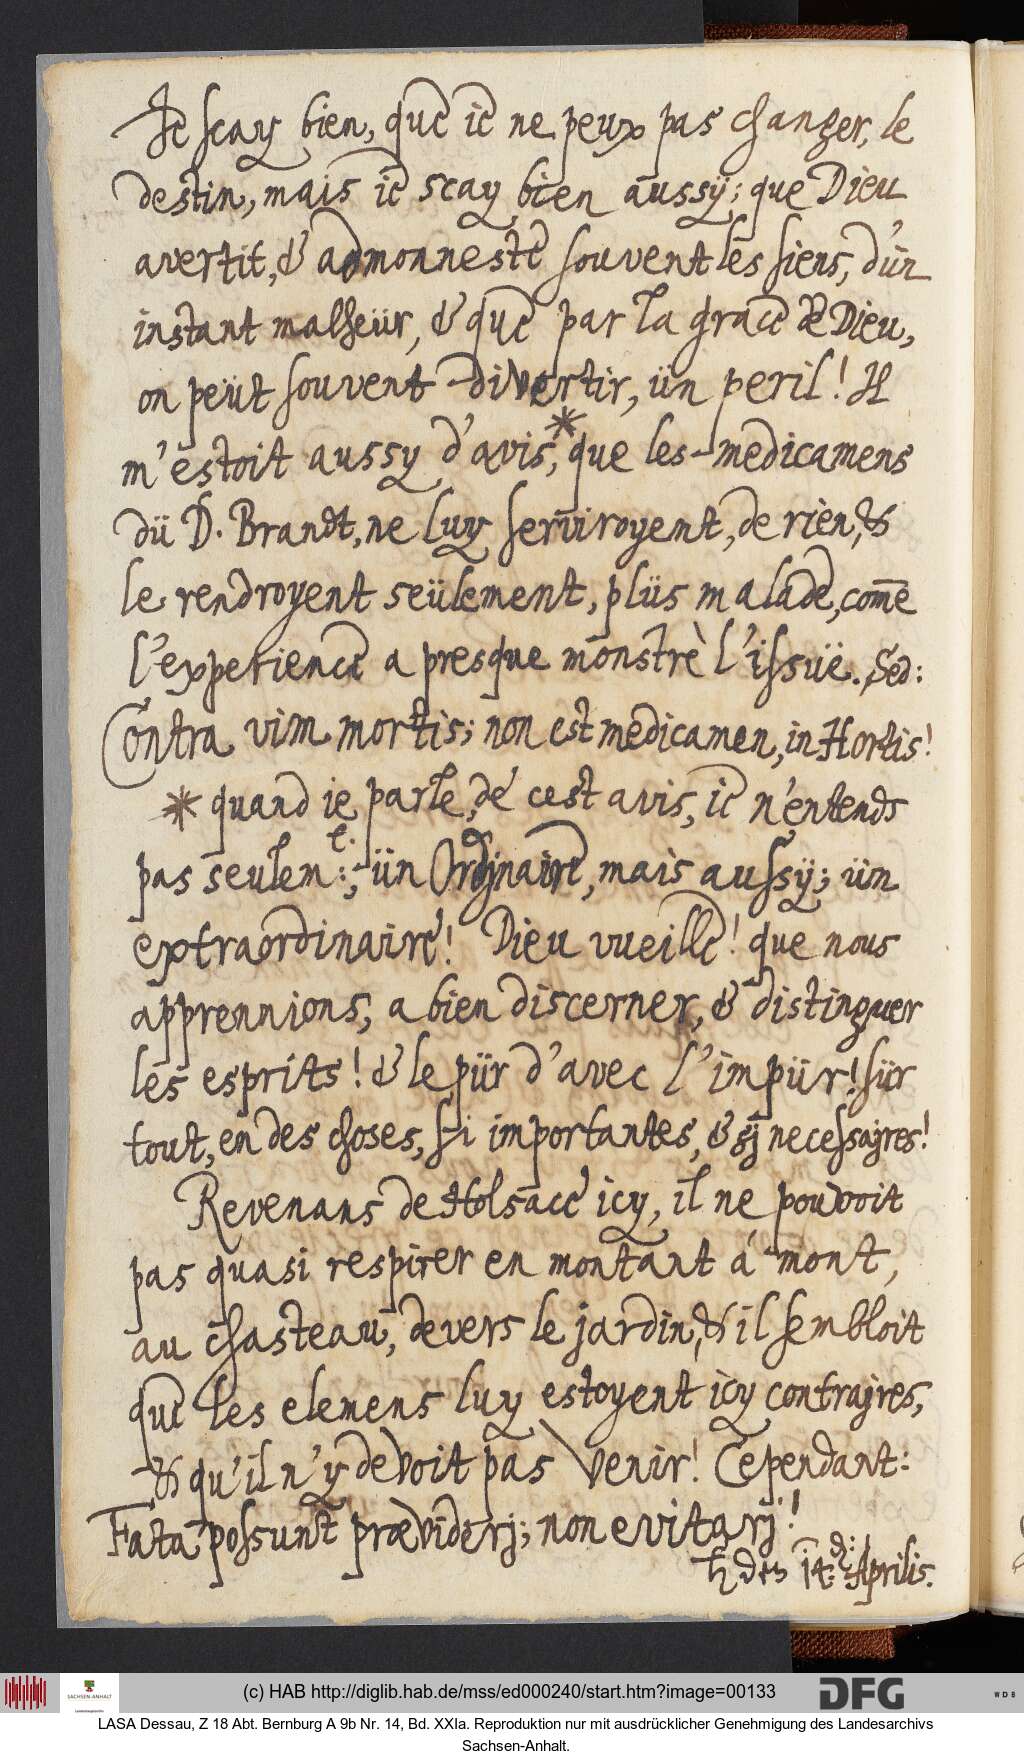 Je scay bien, que ie ne peux pas changer, le
destin, mais ie scay bien aussÿ; que Dieu
avertit, & admonneste souvent les siens, d'ün
instant malheür, & que par la grace de Dieu,
on peüt souvent divertir, ün peril! Il
m'estoit aussy d'avis,* que les medicamens
dü D. Brandt, ne luy serviroyent, de rien, &
le rendroyent seülement, plüs malade, com̄e
l'experience a presque monstrè l'issuë. Sed:
Contra vim mortis; non est medicamen, in Hortis!
* quand ie parle, de cest avis, ie n'entends
pas seulem:t:, ün Ordjnaire, mais aussÿ; ün
extraordinaire! Dieu vueille! que nous
apprennions, a bien discerner, & distinguer
les esprits! & le pür d'avec l'impür! sür
tout, en des choses, si importantes, & sj necessajres!
Revenans de Holsace icy, il ne pouvoit
pas quasi respirer en montant á mont,
au chasteau, devers le jardin, & il sembloit
que les elemens luy estoyent icy contrajres,
& qu'il n'y devoit pas venir! Cependant:
Fata possunt præviderj; non evitarj!
♄ den 14. d: Aprilis.
(c) HAB http://diglib.hab.de/mss/ed000240/start.htm?image=00133
SACHSEN-ANHALT
DFG
WDB
LASA Dessau, Z 18 Abt. Bernburg A 9b Nr. 14, Bd. XXIa. Reproduktion nur mit ausdrücklicher Genehmigung des Landesarchivs
Sachsen-Anhalt.